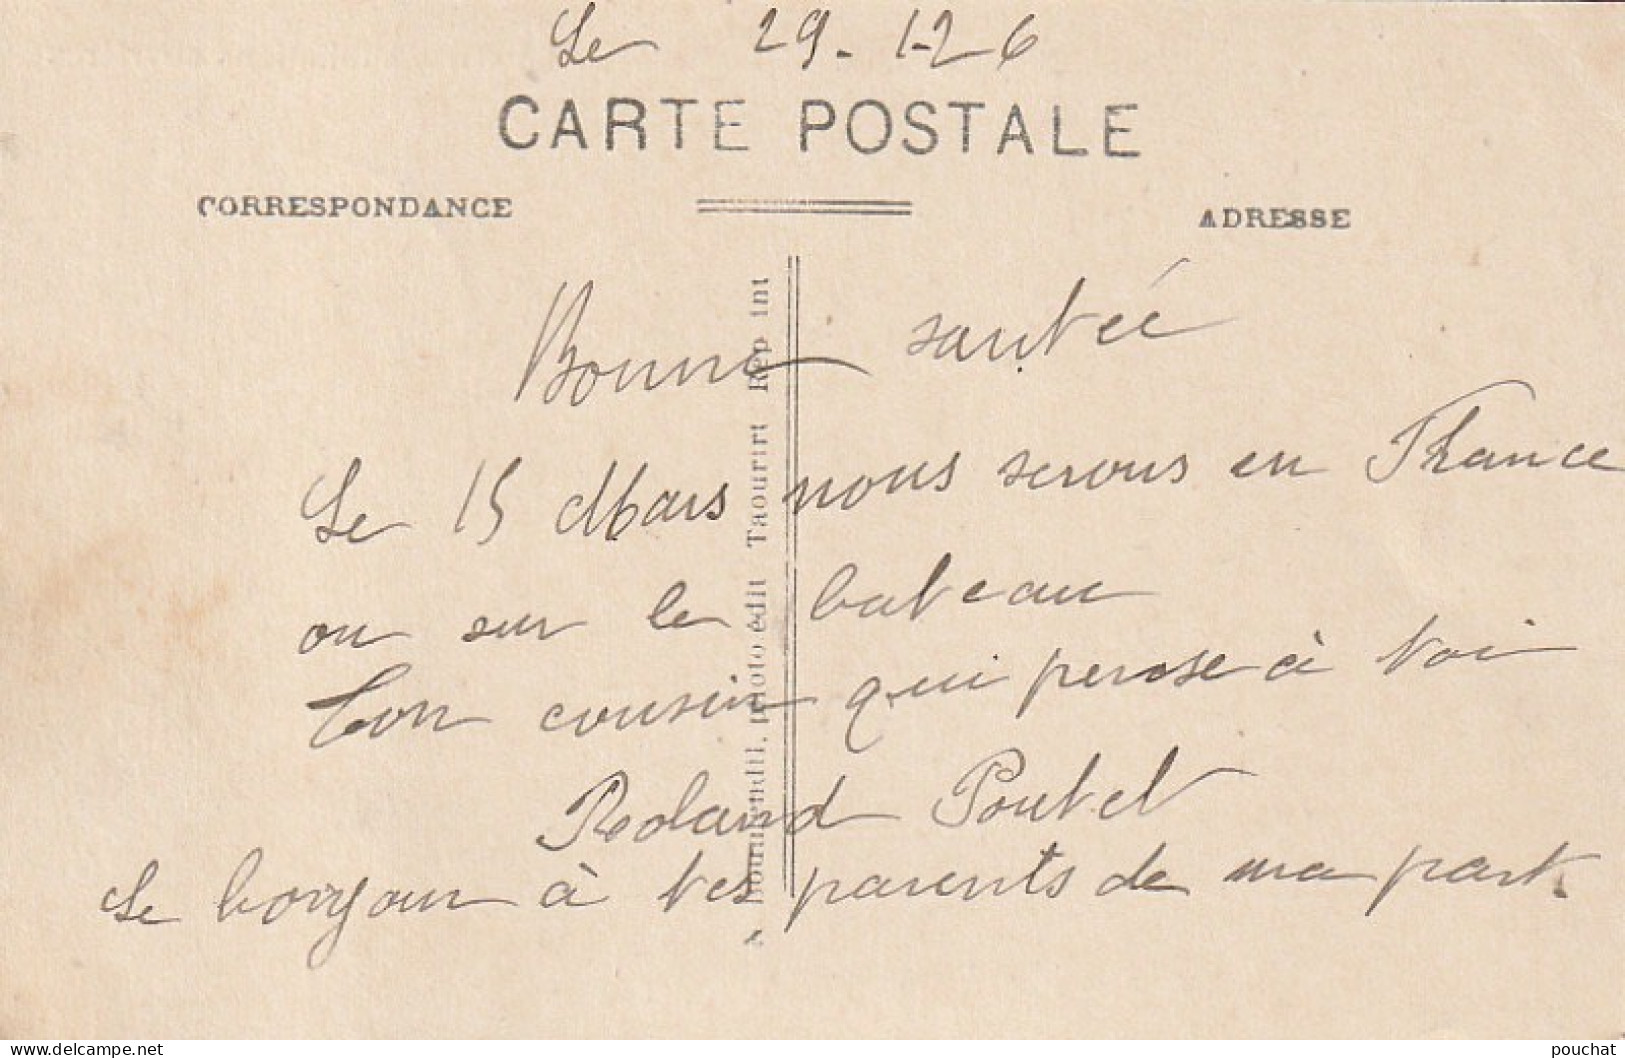 Le 29-1-26
CARTE POSTALE
CORRESPONDANCE
ADRESSE
Bonne santée
Le 15 Mars nous serons en France
ou sur le bateau
Ton cousin qui pense à toi
Roland Poutet
Le bonjour à tes parents de ma part.
photo édit Taourirt Rep int
www.delcampe.net
pouchat